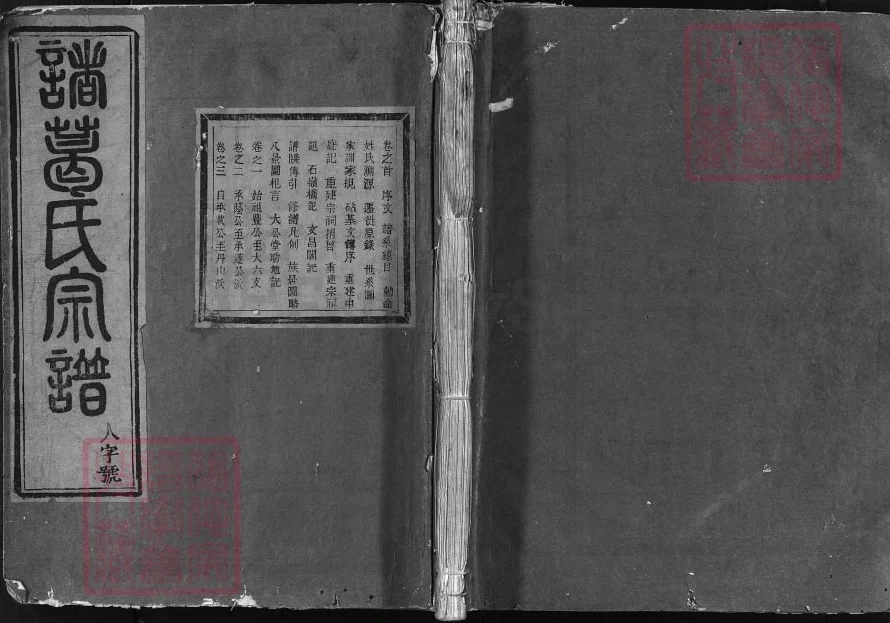 諸葛氏宗譜
八字號
卷之首 序文 譜系總目
姓氏溯源 遷徙原錄 世系圖
家訓家規 重建中
庭記 重建宗祠捐啓 重建宗祠
記 石嶺橋記 文昌閣記
譜牒傳引 修譜凡例 族居圖略
八景圖 大公堂助地記
卷之一 始祖豐公至大六支
卷之二 承蔭公至承遂公派
卷之三 自承載公至丹山派